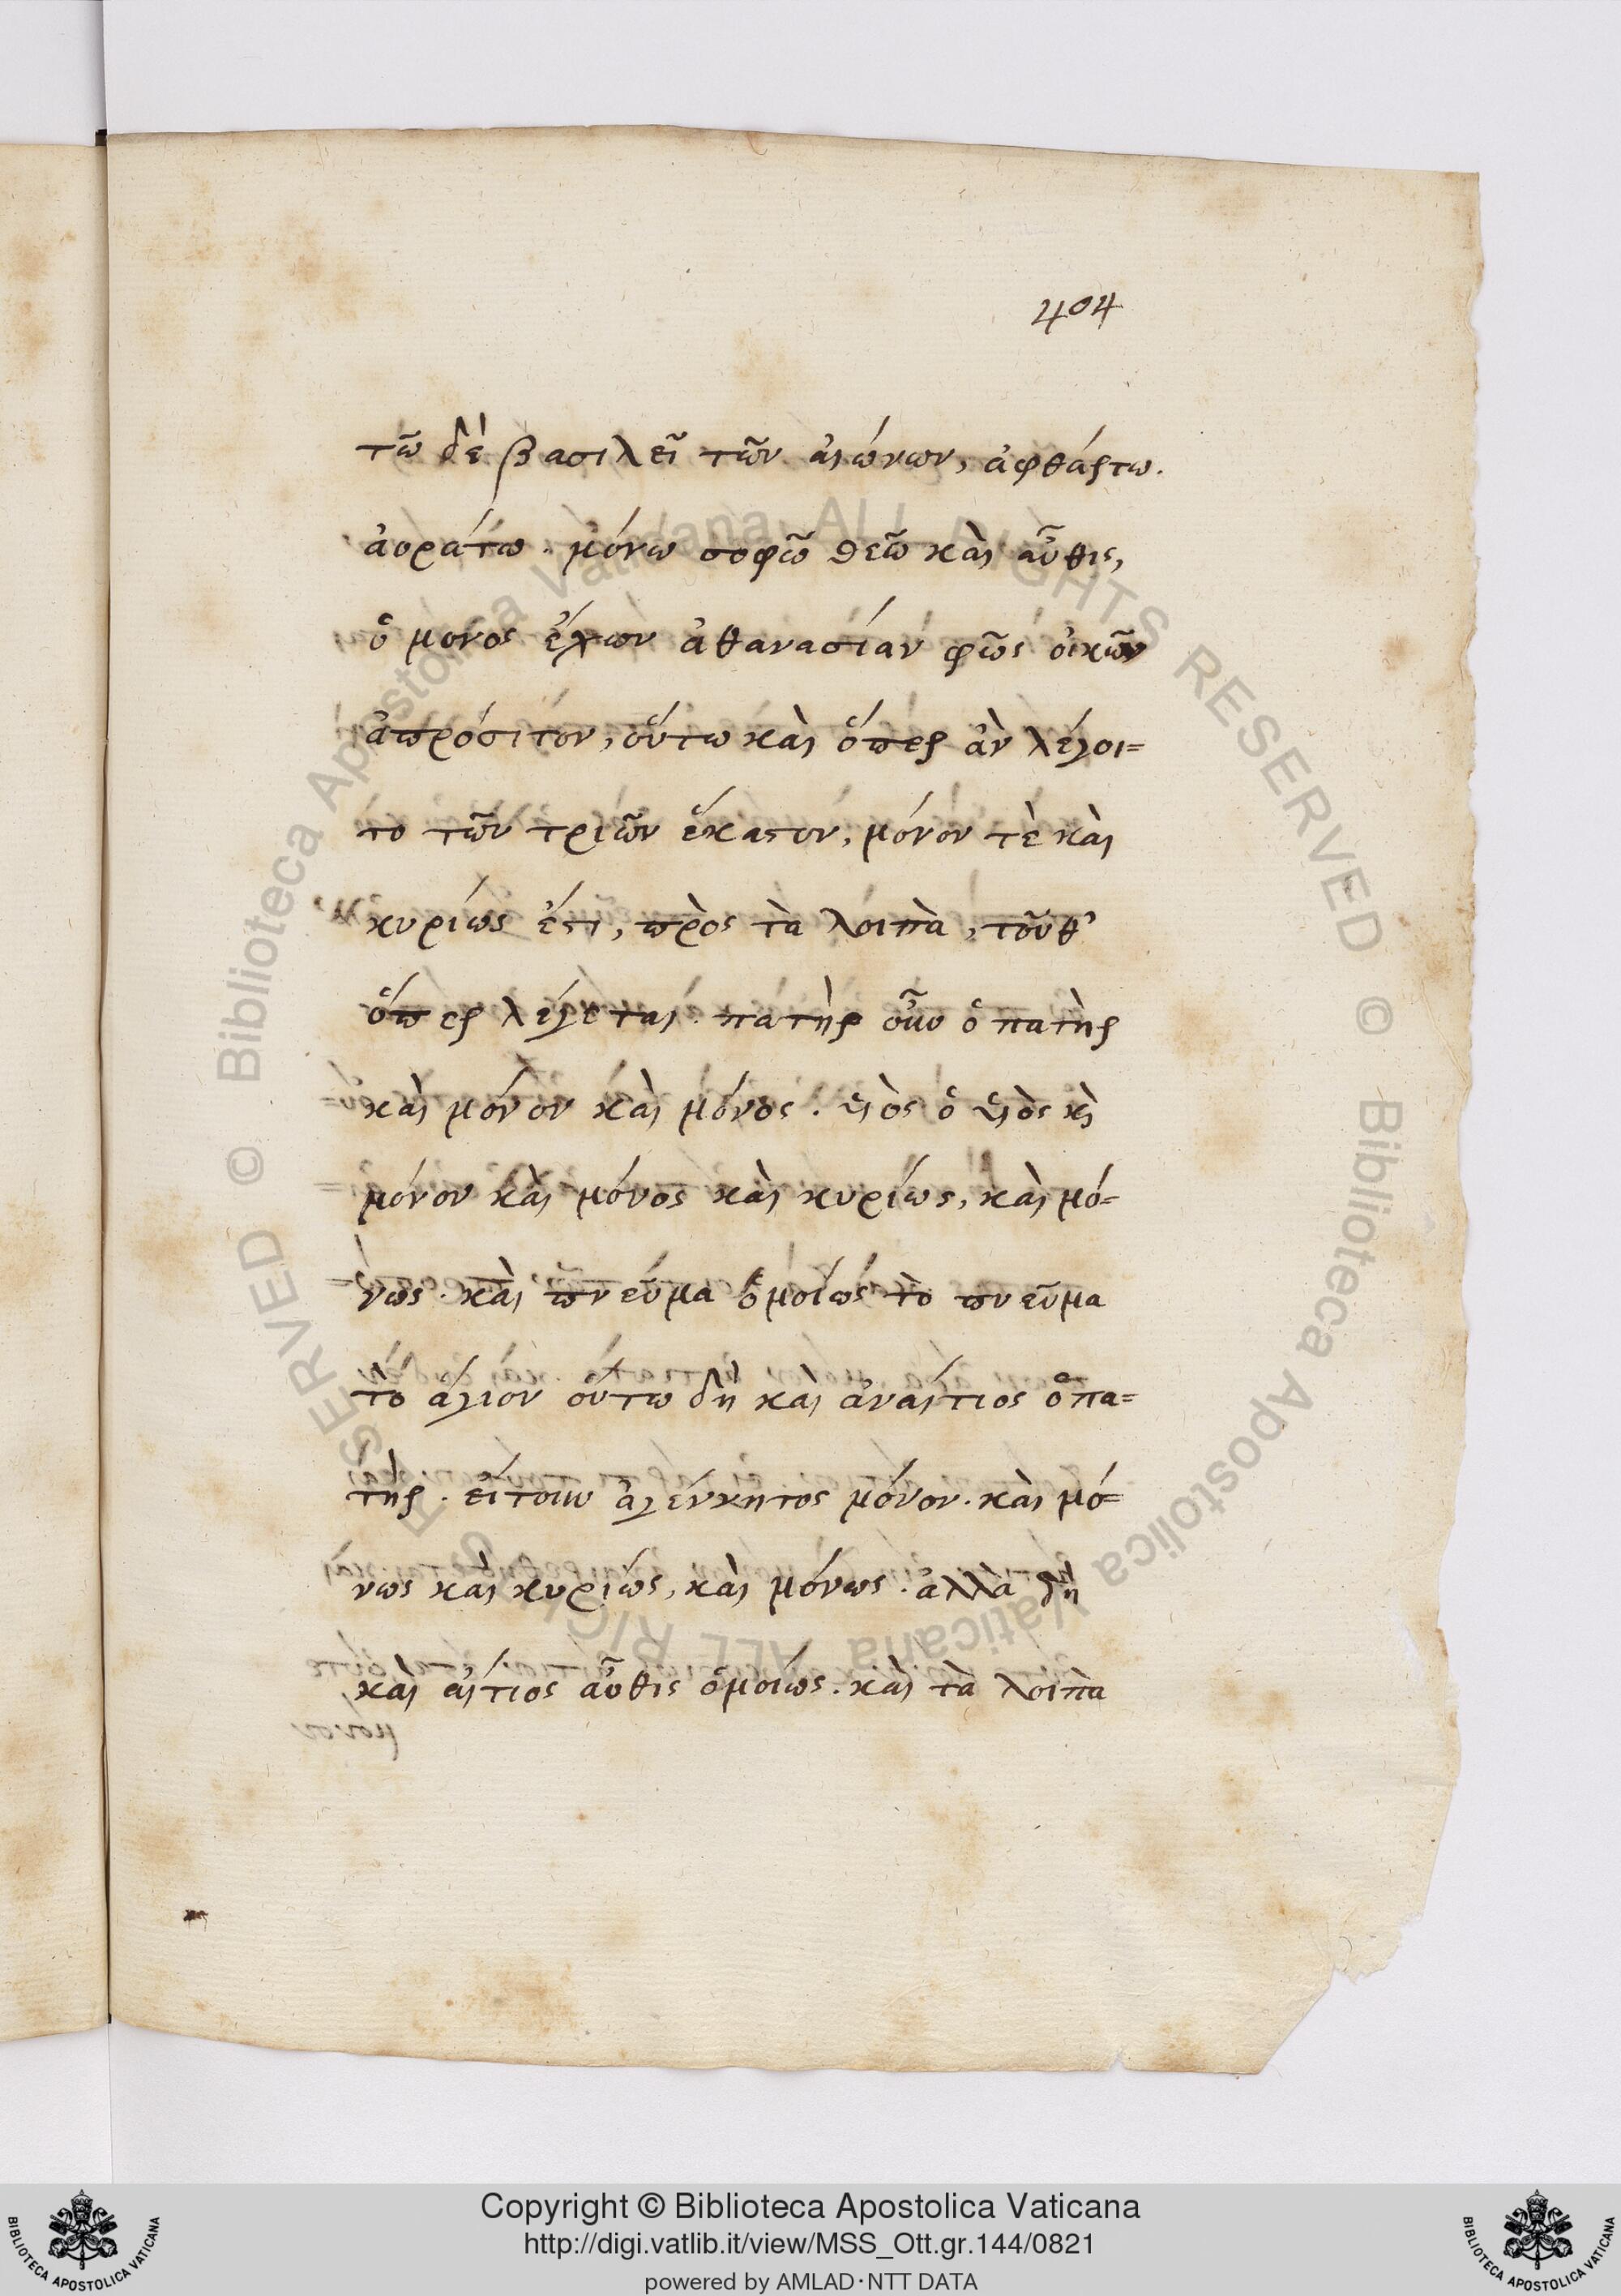 404
τῶ δὲ βασιλεῖ τῶν αἰώνων, ἀφθάρτω.
ἀοράτω. μόνω σοφῶ θεῶ καὶ αὖθις,
ὁ μονος ἔχων ἀθανασίαν φῶς οἰκῶν
ἀπρόσιτον, οὕτω καὶ ὅπερ ἂν λέγοι=
το τῶν τριῶν ἕκαστον, μόνον τὲ καὶ
κυρίως ἐστι, πρὸς τὰ λοιπὰ, τοῦθ'
ὅπερ λέγεται. πατὴρ οὖν ὁ πατὴρ
καὶ μόνον καὶ μόνος. υἱὸς ὁ υἱὸς κὶ
μόνον καὶ μόνος καὶ κυρίως, καὶ μό=
νως. καὶ πνεῦμα ὁμοίως τὸ πνεῦμα
τὸ άγιον οὕτω δὴ και ἀναίτιος ὁ πα=
τὴρ. εἴτουν ἀγέννητος μόνον. καὶ μό=
νως καὶ κυρίως, καὶ μόνως. ἀλλὰ δὴ
καὶ αἴτιος αὖθις ὁμοίως. καὶ τὰ λοιπὰ
Copyright © Biblioteca Apostolica Vaticana
http://digi.vatlib.it/view/MSS_Ott.gr.144/0821
powered by AMLAD·NTT DATA
© Biblioteca Apostolica Vaticana ALL RIGHTS RESERVED
© Biblioteca Apostolica Vaticana ALL RIGHTS RESERVED
BIBLIOTECA APOSTOLICA VATICANA
BIBLIOTECA APOSTOLICA VATICANA